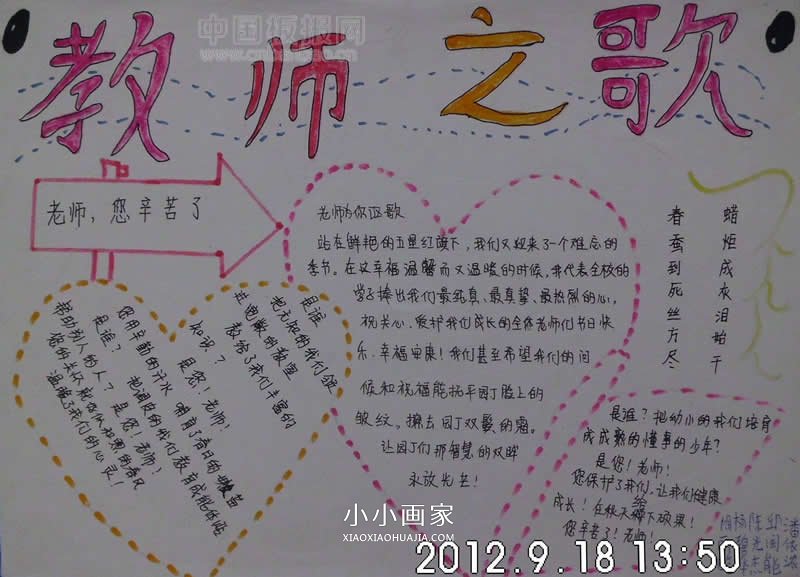 中国板报网
教师之歌
老师，您辛苦了
老师为你讴歌
站在鲜艳的五星红旗下，我们又迎来了一个难忘的
季节。在这幸福温馨而又温暖的时候，我代表全校的
学子捧出我们最纯真、最真挚、最热烈的心。
祝关心、爱护我们成长的全体老师们节日快
乐、幸福安康！我们甚至希望我们的问
候和祝福能抚平园丁脸上的
皱纹，擦去园丁双鬓的霜。
让园丁们那智慧的双眸
永放光芒！
春蚕到死丝方尽
蜡炬成灰泪始干
是谁
把无知的我们领
进宽敞的教室
教给了我们丰富的
知识？
是您！老师！
您用辛勤的汗水 哺育了春日的嫩苗
是谁？ 把调皮的我们教育成能体谅
帮助别人的人？ 是您！老师！
您的关怀就好似和煦的春风
温暖了我们的心灵！
是谁？把幼小的我们培育
成成熟的懂事的少年？
是您！老师！
您保护了我们，让我们健康
成长！在秋天
下硕果！
您辛苦了！老师！
小小画家
XIAOXIAOHUAJIA.COM
2012.9.18 13:50